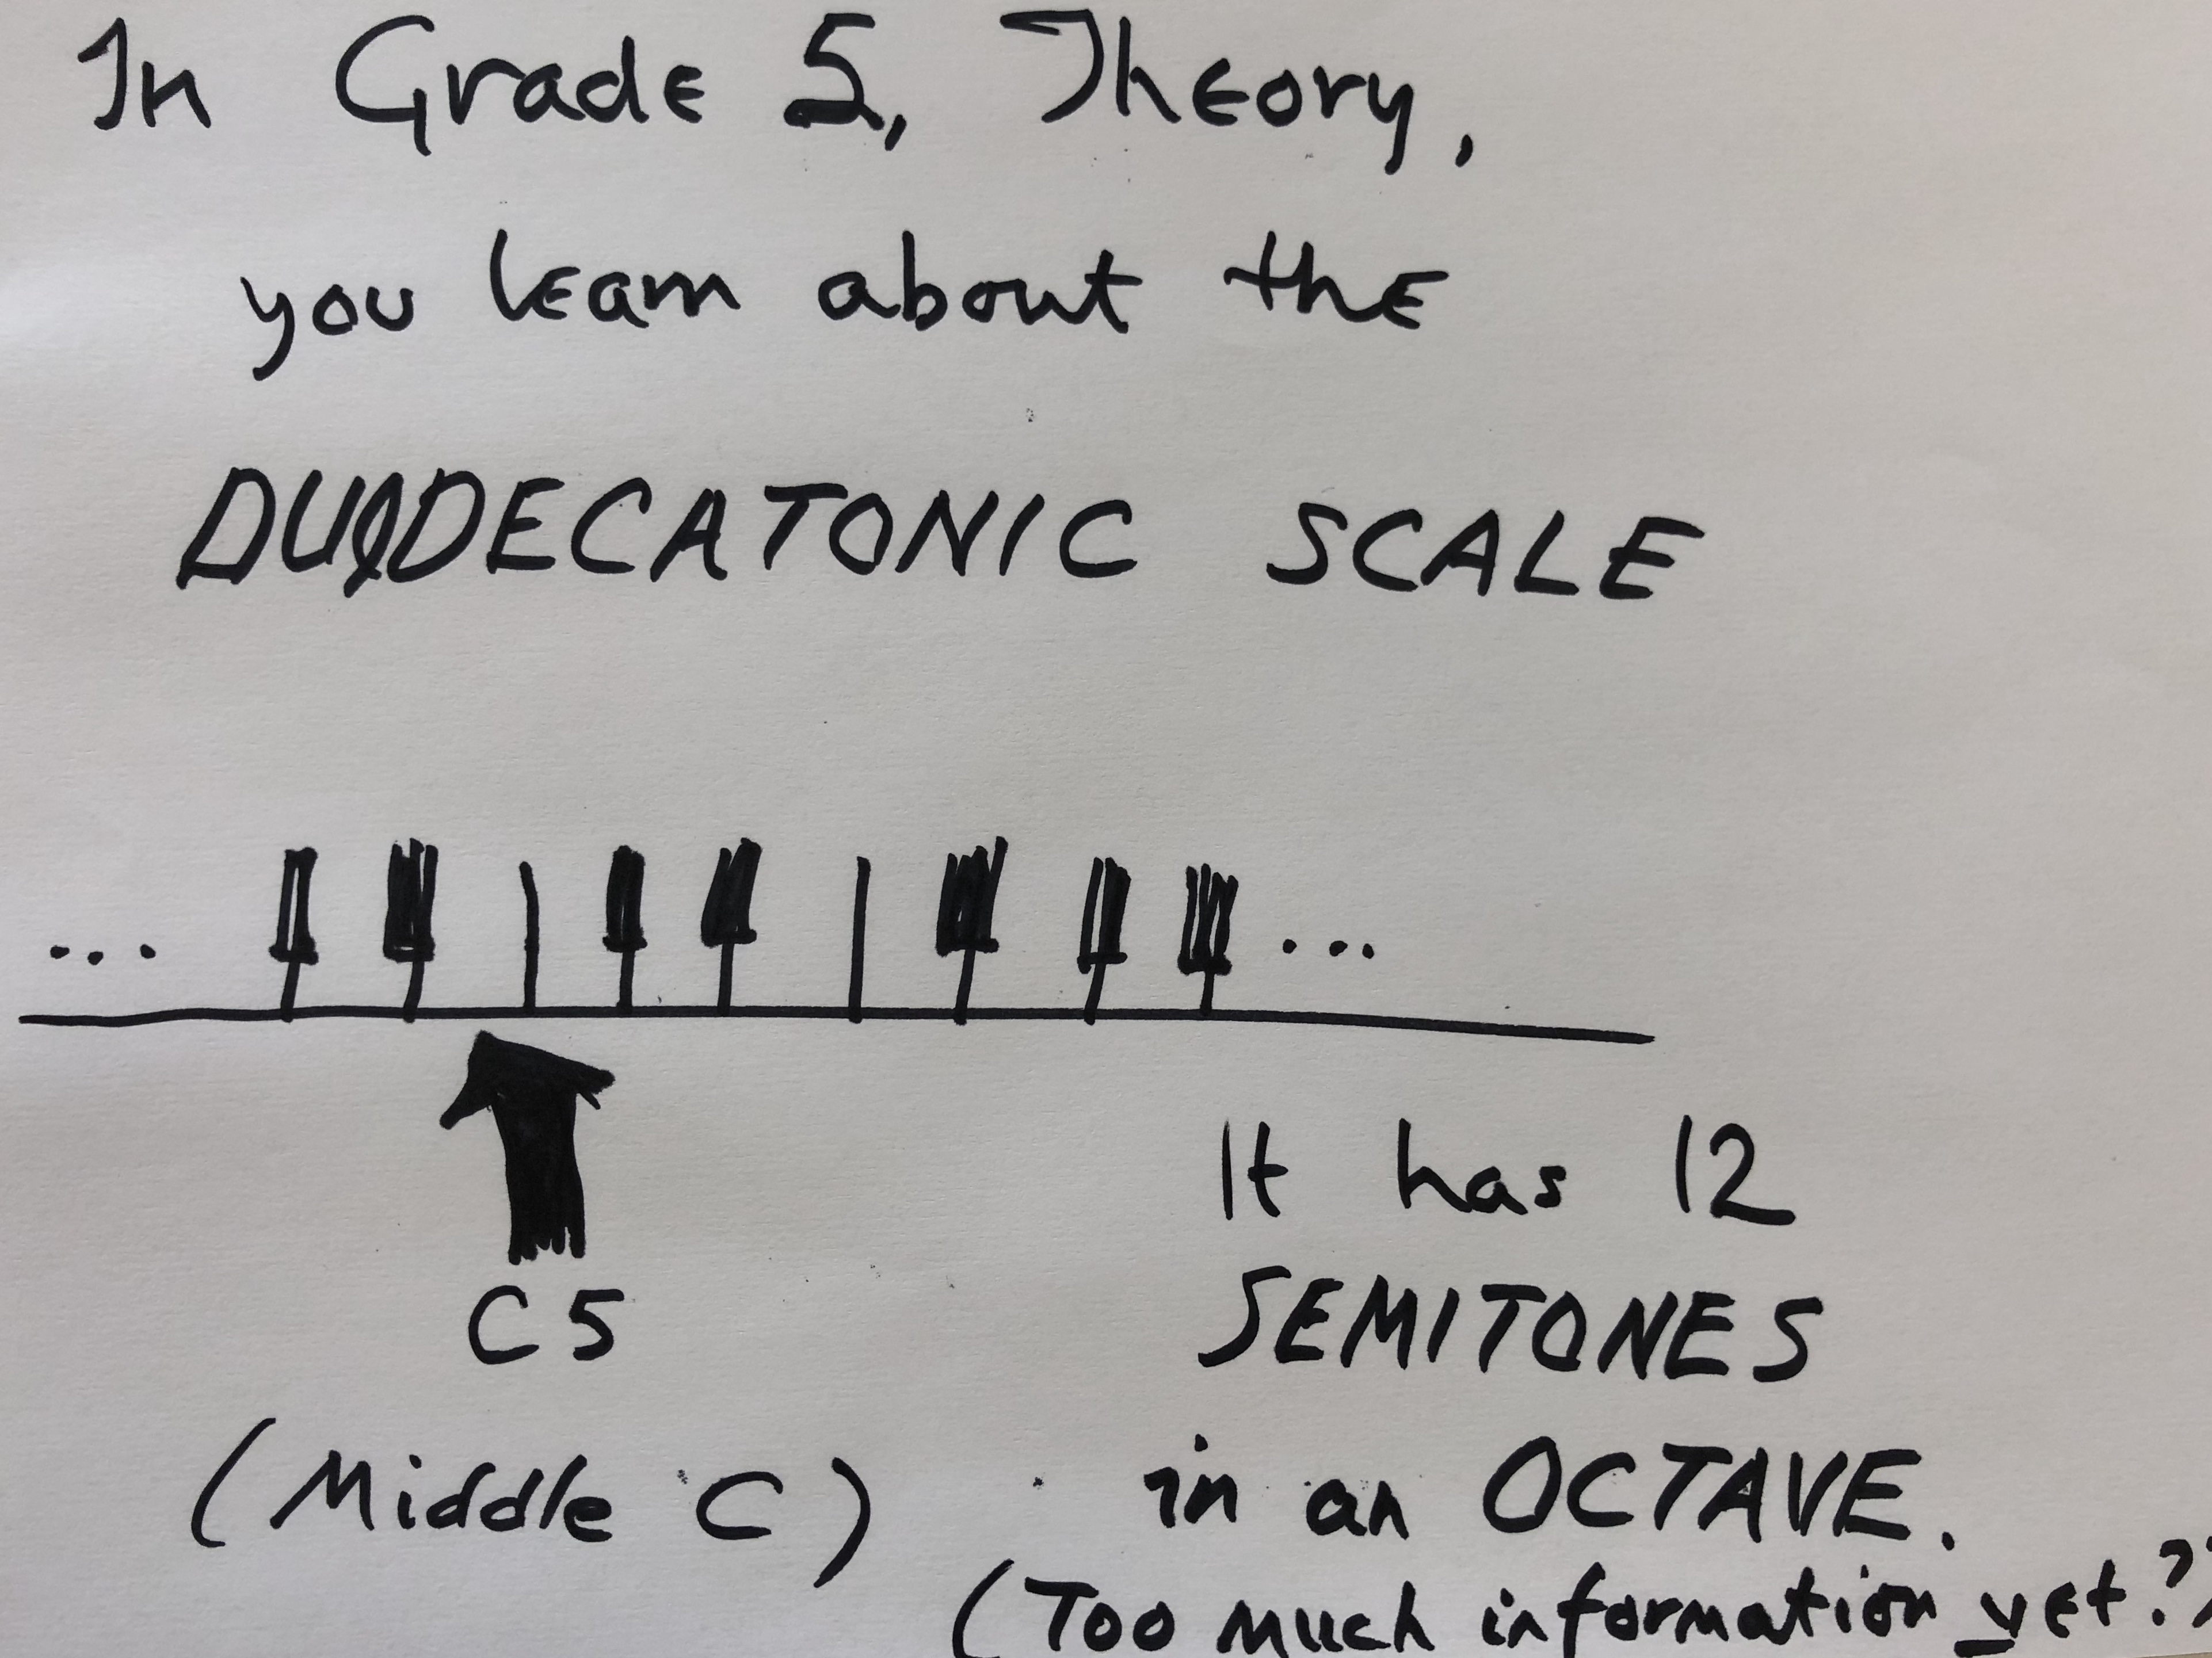 In Grade 5, Theory,
you learn about the
DUODECATONIC SCALE
... ...
C5
(Middle C)
It has 12
SEMITONES
in an OCTAVE.
(Too much information yet?)